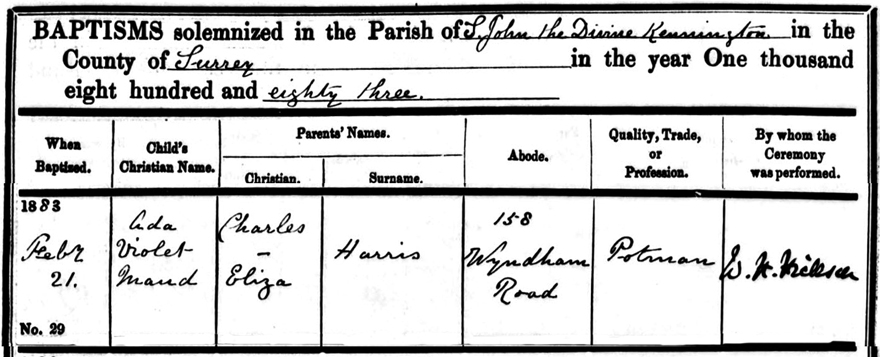 BAPTISMS solemnized in the Parish of S. John the Divine Kennington in the
County of Surrey in the year One thousand
eight hundred and eighty three.
When Baptized.
Child's Christian Name.
Parents' Names.
Christian.
Surname.
Abode.
Quality, Trade, or Profession.
By whom the Ceremony was performed.
1883
Feby
21.
Ada
Violet
Maud
Charles
–
Eliza
Harris
158
Wyndham
Road
Potman
W. H.
No. 29